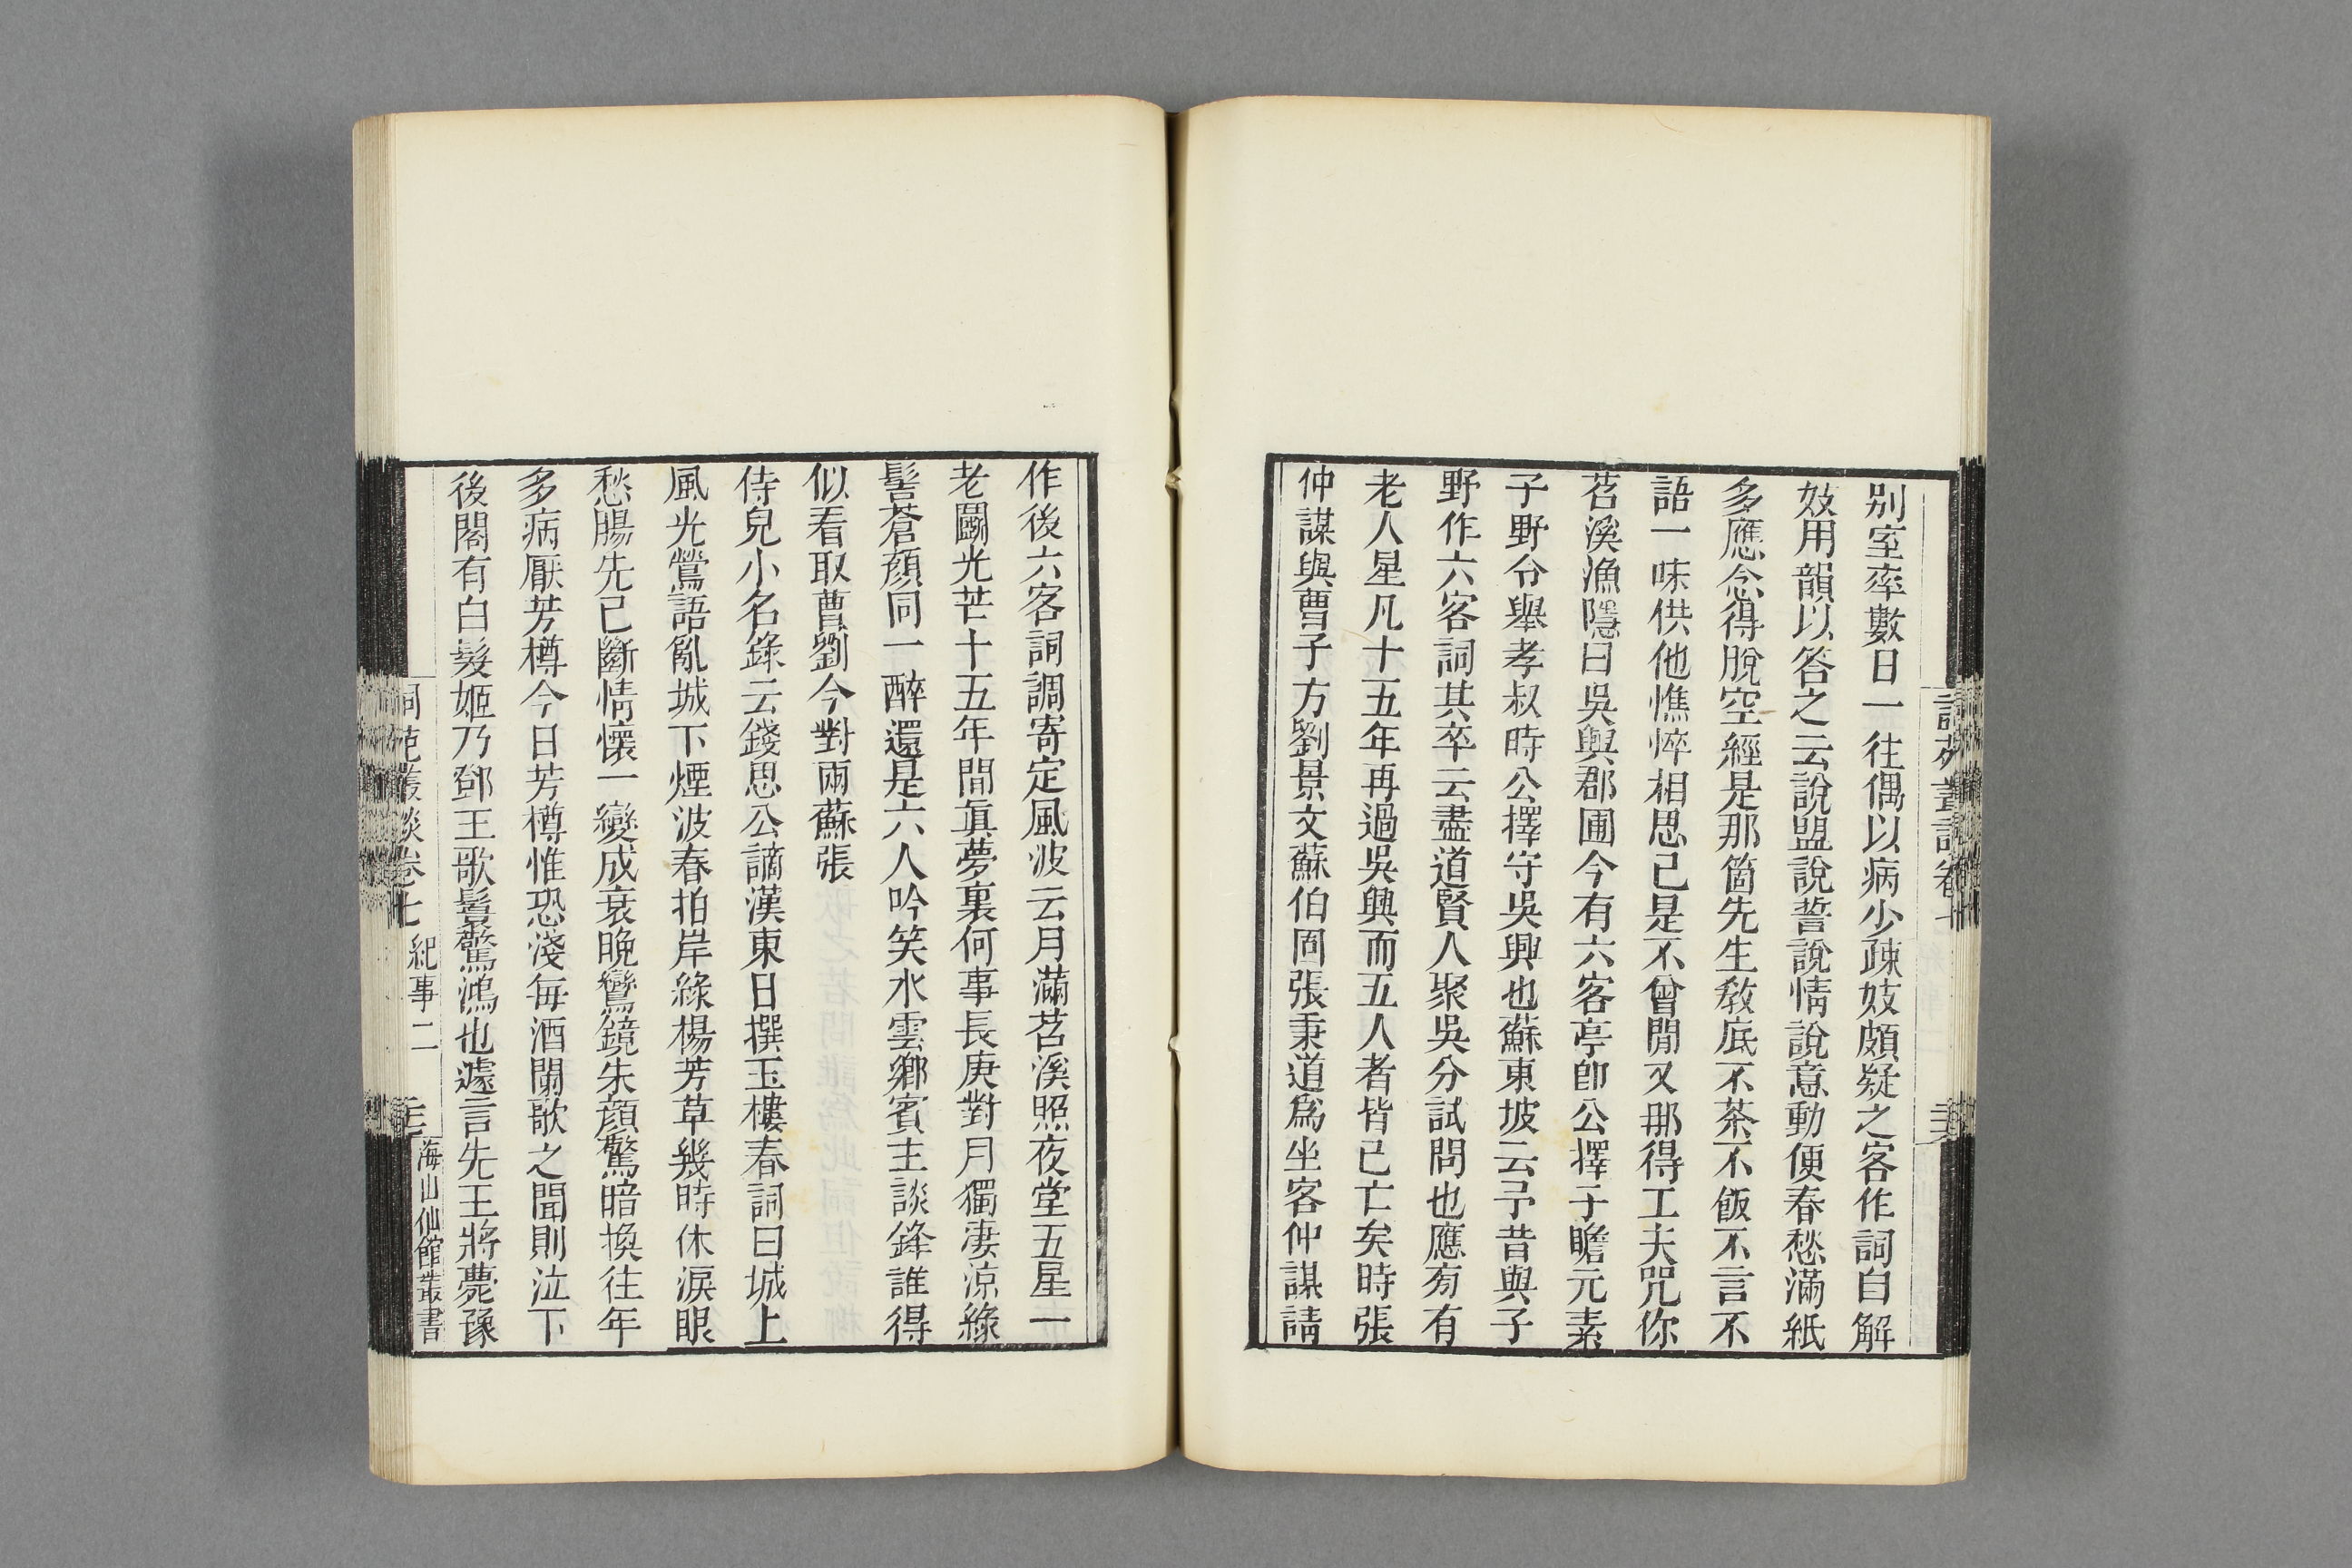 別室率數日一往偶以病少疎妓頗疑之客作詞自解
妓用韻以答之云說盟說誓說情說意動便春愁滿紙
多應念得脫空經是那箇先生敎底不茶不飯不言不
語一味供他憔悴相思已是不曾閒又那得工夫咒你
苕溪漁隱曰吳興郡圃今有六客亭卽公擇子瞻元素
子野令舉孝叔時公擇守吳興也蘇東坡云予昔與子
野作六客詞其卒云盡道賢人聚吳分試問也應旁有
老人星凡十五年再過吳興而五人者皆已亡矣時張
仲謀與曹子方劉景文蘇伯固張秉道爲坐客仲謀請
作後六客詞調寄定風波云月滿苕溪照夜堂五星一
老鬭光芒十五年間眞夢裏何事長庚對月獨淒涼綠
髩蒼顏同一醉還是六人吟笑水雲鄉賓主談鋒誰得
似看取曹劉今對兩蘇張
侍兒小名錄云錢思公謫漢東日撰玉樓春詞曰城上
風光鶯語亂城下煙波春拍岸綠楊芳草幾時休淚眼
愁腸先已斷情懷一變成衰晚鸞鏡朱顏驚暗換往年
多病厭芳樽今日芳樽惟恐淺每酒闌歌之聞則泣下
後閣有白髮姬乃鄧王歌鬟驚鴻也遽言先王將薨豫
詞苑叢談卷七 紀事二 海山仙館叢書